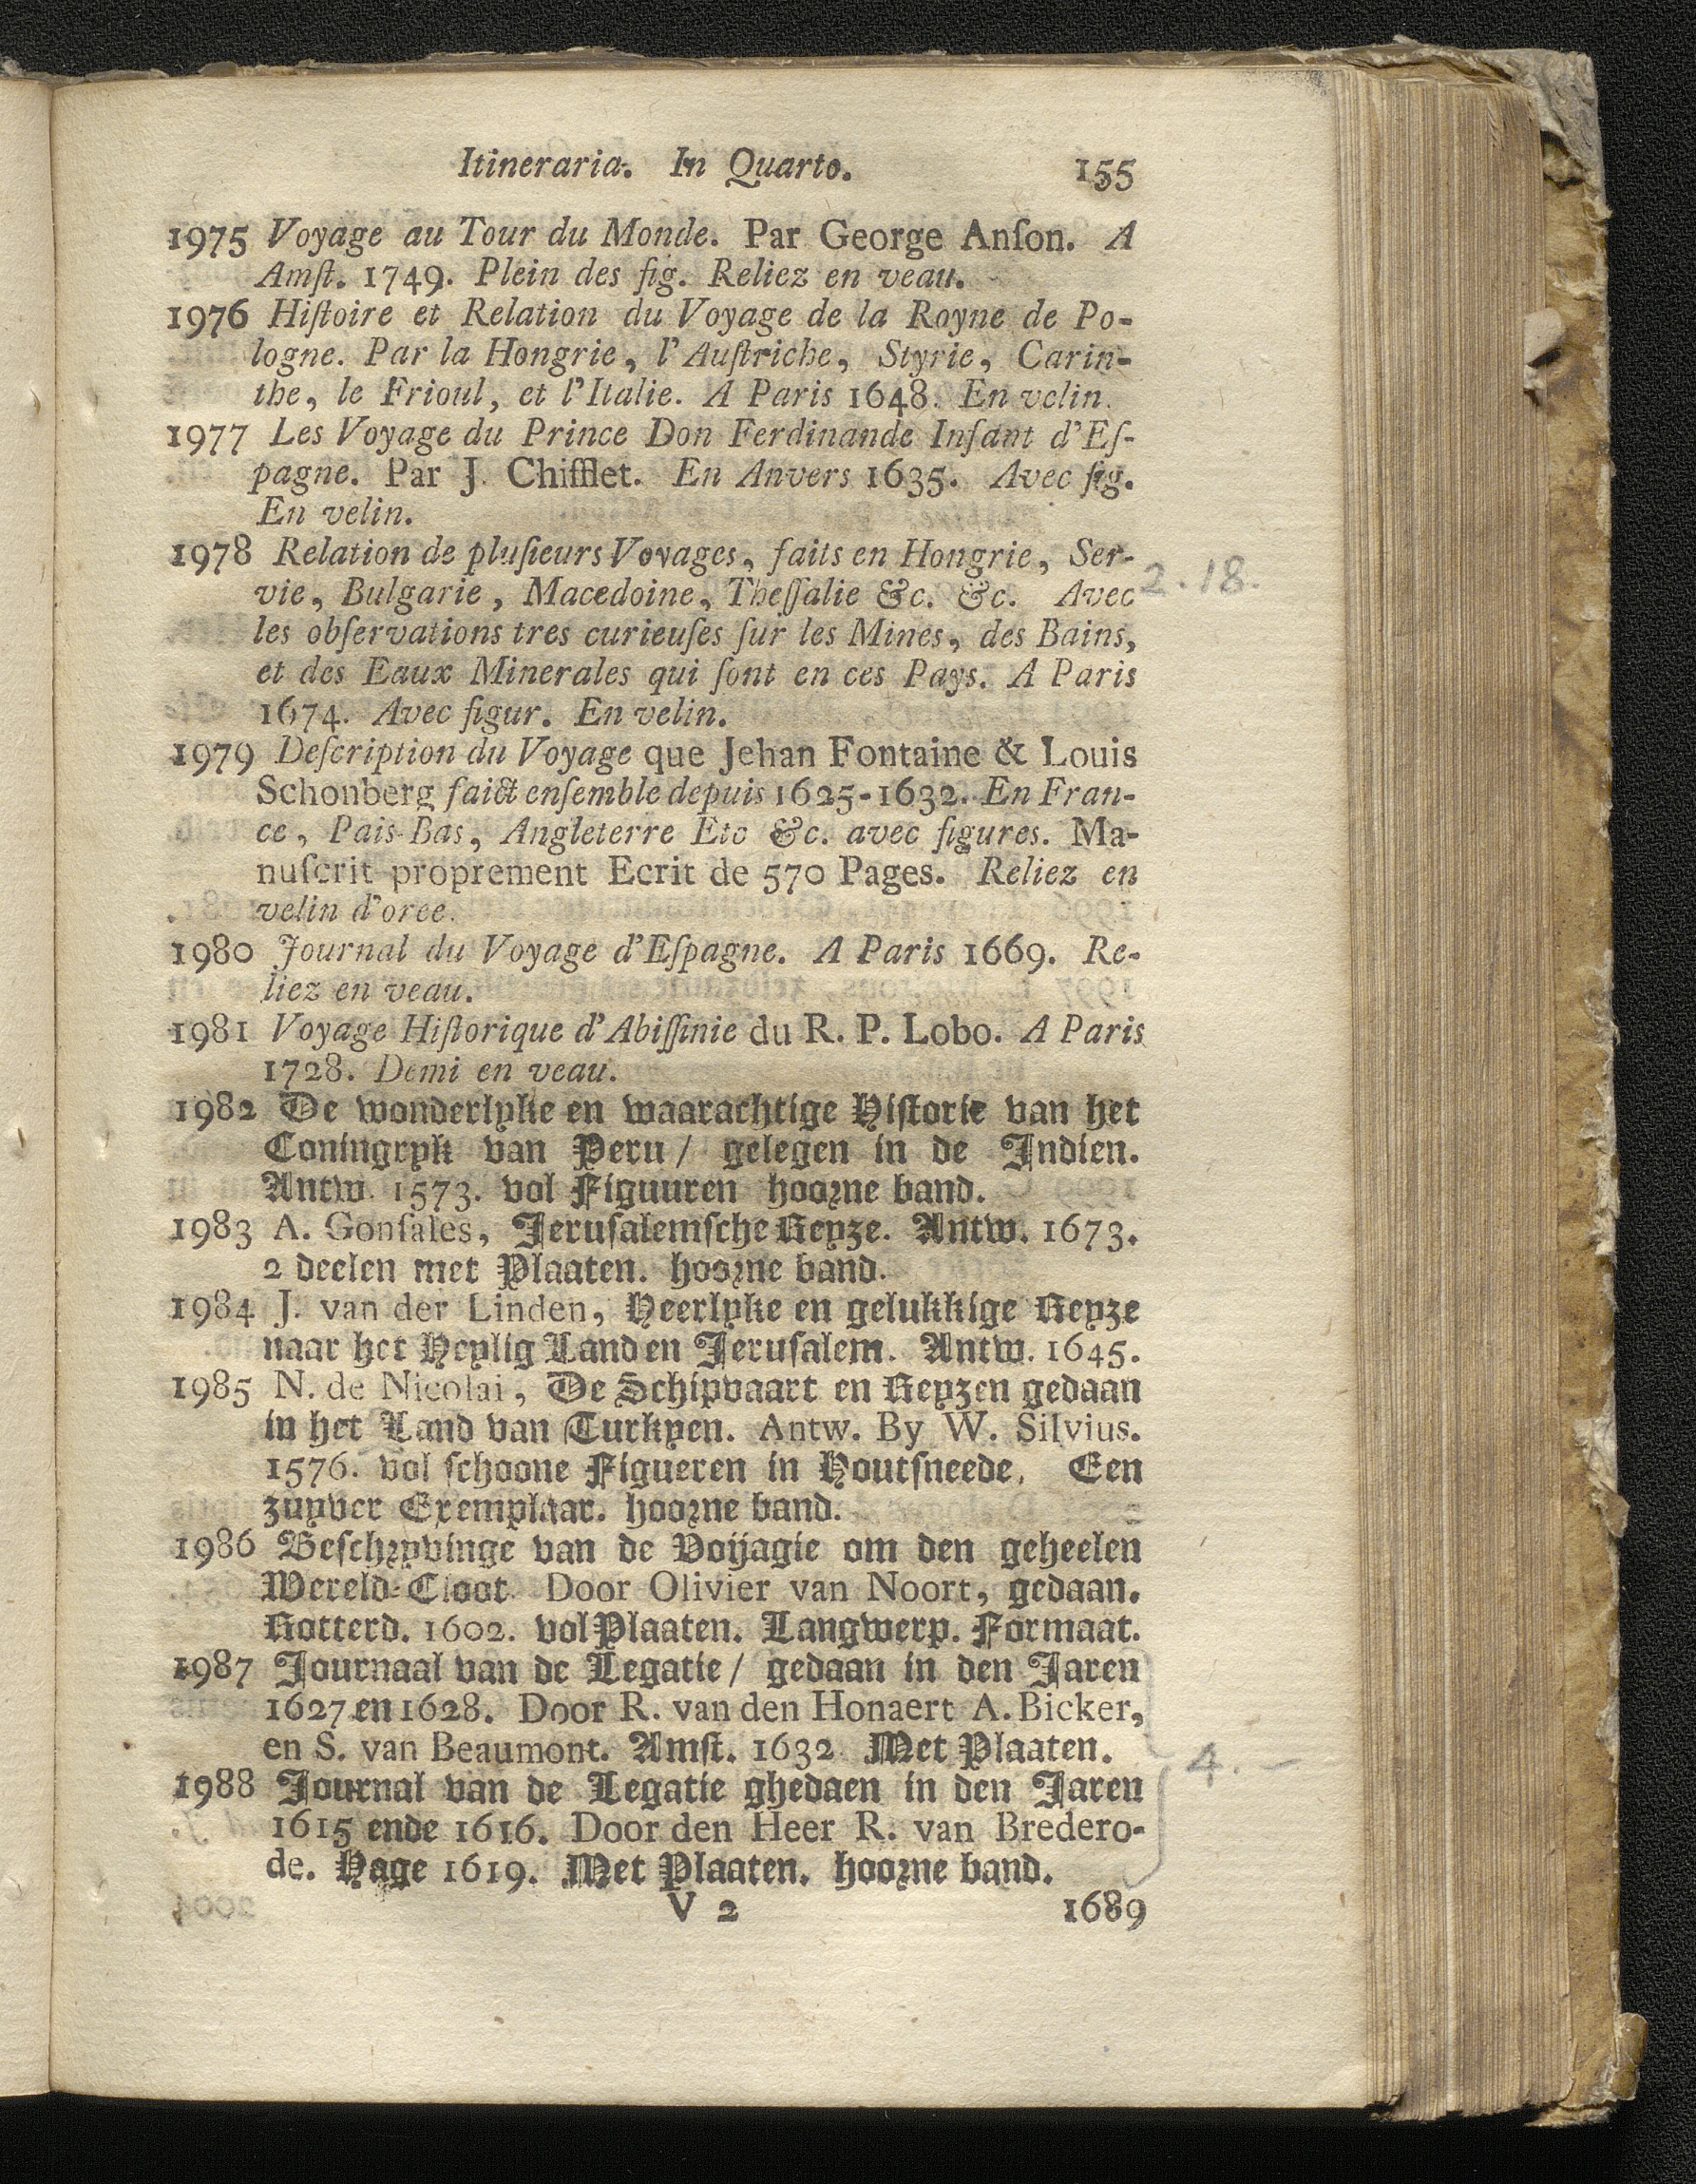 Itineraria. In Quarto. 155
1975 Voyage au Tour du Monde. Par George Anſon. A
Amſt. 1749. Plein des fig. Reliez en veau.
1976 Hiſtoire et Relation du Voyage de la Royne de Po-
logne. Par la Hongrie, l'Auſtriche, Styrie, Carin-
the, le Frioul, et l'Italie. A Paris 1648. En velin.
1977 Les Voyage du Prince Don Ferdinande Infant d'Eſ-
pagne. Par J. Chifflet. En Anvers 1635. Avec fig.
En velin.
1978 Relation de pluſieurs Voyages, faits en Hongrie, Ser-
vie, Bulgarie, Macedoine, Theſſalie &c. &c. Avec 2.18.
les obſervations tres curieuſes ſur les Mines, des Bains,
et des Eaux Minerales qui ſont en ces Pays. A Paris
1674. Avec figur. En velin.
1979 Deſcription du Voyage que Jehan Fontaine & Louis
Schonberg faict enſemble depuis 1625-1632. En Fran-
ce, Pais-Bas, Angleterre Etc &c. avec figures. Ma-
nuſcrit proprement Ecrit de 570 Pages. Reliez en
velin d'oree.
1980 Journal du Voyage d'Eſpagne. A Paris 1669. Re-
liez en veau.
1981 Voyage Hiſtorique d'Abiſſinie du R. P. Lobo. A Paris
1728. Demi en veau.
1982 De wonderlyke en waarachtige Hiſtorie van het
Coningryk van Peru / gelegen in de Indien.
Antw. 1573. vol Figuuren hoorne band.
1983 A. Gonſales, Jeruſalemſche Reyze. Antw. 1673.
2 deelen met Plaaten. hoorne band.
1984 J. van der Linden, Heerlyke en gelukkige Reyze
naar het Heylig Land en Jeruſalem. Antw. 1645.
1985 N. de Nicolai, De Schipvaart en Reyzen gedaan
in het Land van Turkyen. Antw. By W. Silvius.
1576. vol ſchoone Figueren in Houtſneede. Een
zuyver Exemplaar. hoorne band.
1986 Beſchryvinge van de Voijagie om den geheelen
Wereld-Cloot Door Olivier van Noort, gedaan.
Rotterd. 1602. vol Plaaten. Langwerp. Formaat.
1987 Journaal van de Legatie / gedaan in den Jaren
1627 en 1628. Door R. van den Honaert A. Bicker,
en S. van Beaumont. Amſt. 1632. Met Plaaten.
4. –
1988 Journal van de Legatie ghedaen in den Jaren
1615 ende 1616. Door den Heer R. van Bredero-
de. Hage 1619. Met Plaaten. hoorne band.
V 2 1689